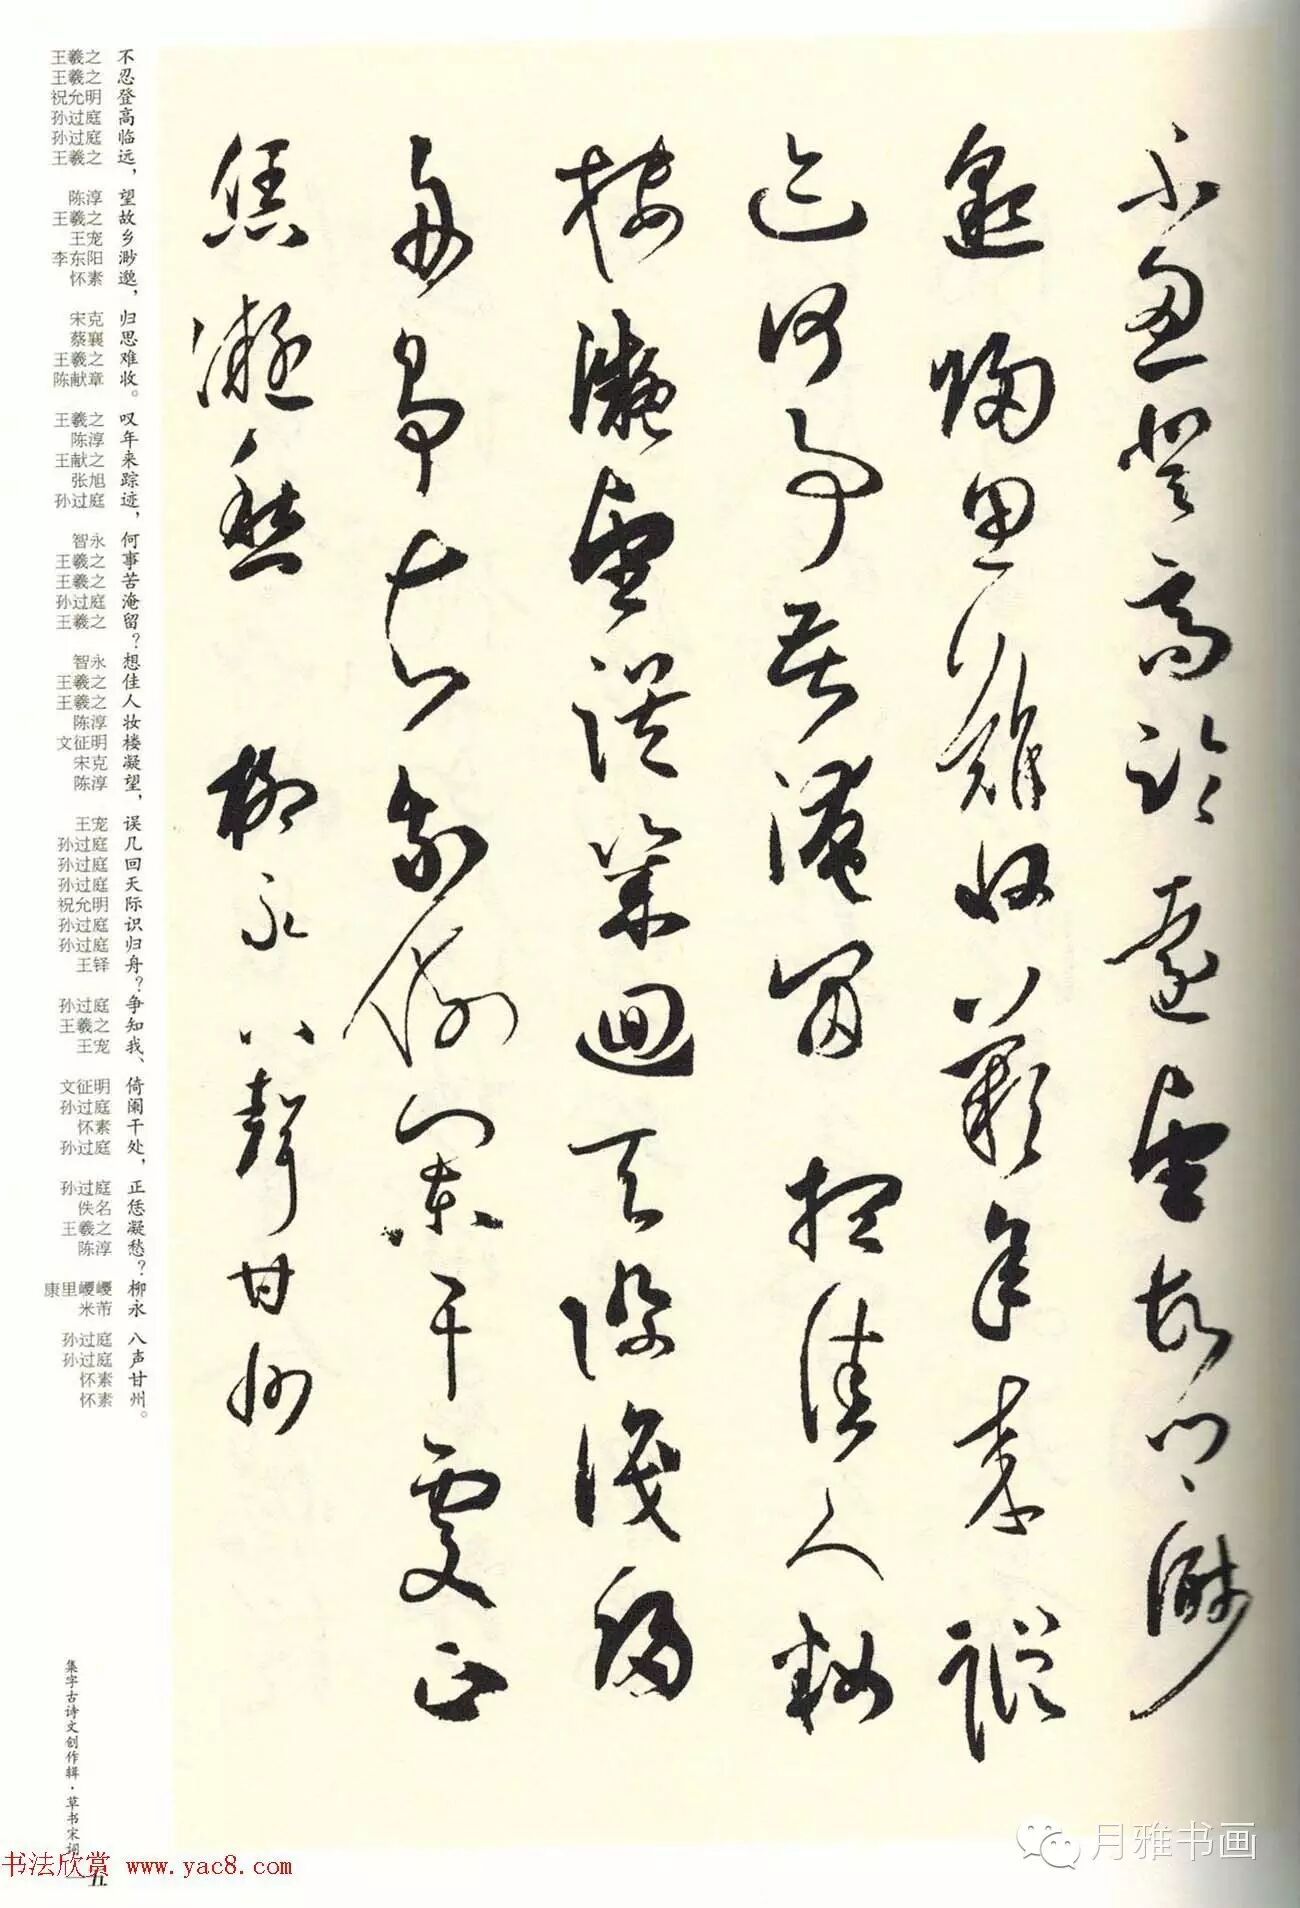 不忍登高臨遠望故鄉渺
邈歸思難收歎年来蹤
迹何事苦淹留想佳人妝
樓凝望誤幾迴天際識歸
舟爭知我倚闌干處正
恁凝愁 柳永八聲甘州
不忍登高临远，望故乡渺邈，归思难收。叹年来踪迹，何事苦淹留？想佳人妆楼凝望，误几回天际识归舟？争知我、倚阑干处，正恁凝愁？柳永 八声甘州。
王羲之 王羲之 祝允明 孙过庭 孙过庭 王羲之 陈淳 王羲之 王宠 李东阳 怀素 宋克 蔡襄 王羲之 陈献章 王羲之 陈淳 王献之 张旭 孙过庭 智永 王羲之 王羲之 孙过庭 王羲之 智永 王羲之 王羲之 陈淳 文征明 宋克 陈淳 王宠 孙过庭 孙过庭 孙过庭 祝允明 孙过庭 孙过庭 王铎 孙过庭 王羲之 王宠 文征明 孙过庭 怀素 孙过庭 孙过庭 佚名 王羲之 陈淳 康里巎巎 米芾 孙过庭 孙过庭 怀素 怀素
集字古诗文创作辑·草书宋词
一五
书法欣赏 www.yac8.com
月雅书画